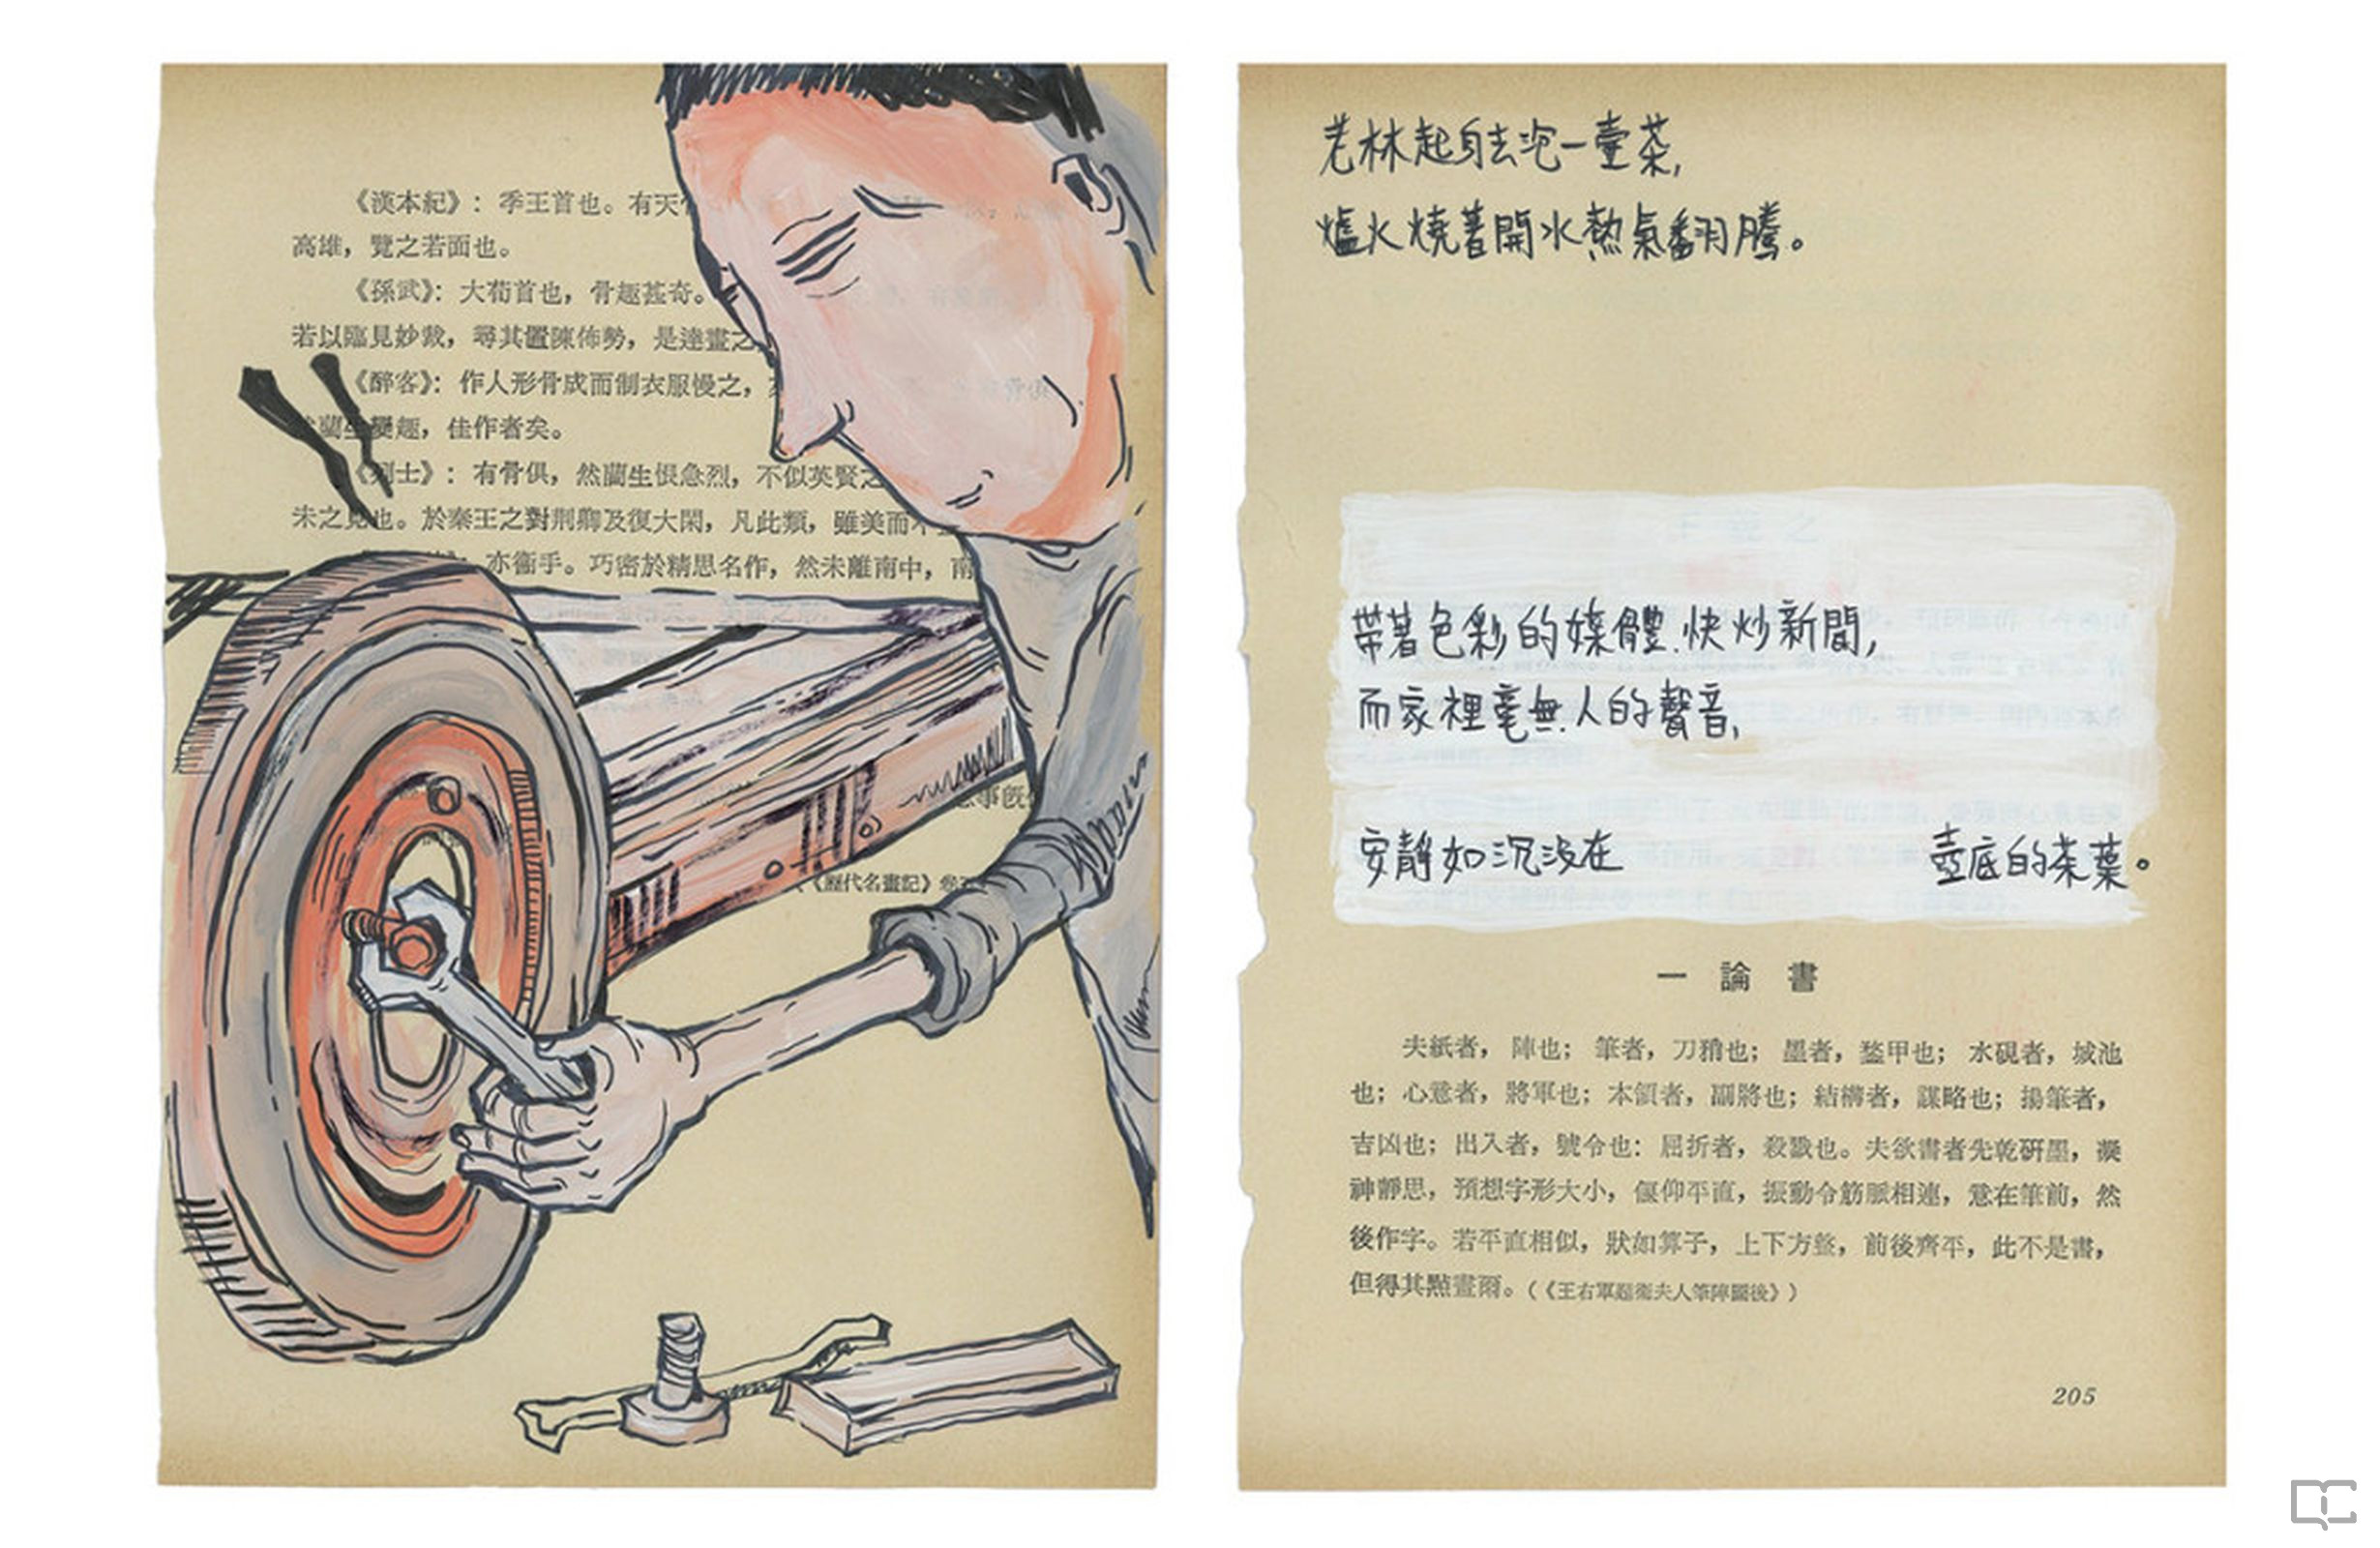 《漢本紀》：季王首也。有天
高雄，覽之若面也。
《孫武》：大荀首也，骨趣甚奇。
若以臨見妙裁，尋其置陳佈勢，是達畫之
《醉客》：作人形骨成而制衣服慢之，
藺生變趣，佳作者矣。
《列士》：有骨俱，然藺生恨急烈，不似英賢之
未之見也。於秦王之對荆卿及復大閑，凡此類，雖美而不
亦衞手。巧密於精思名作，然未離南中，南
事旣
《歷代名畫記》卷五
老林起身去泡一壺茶，
爐火燒著開水熱氣翻騰。
帶著色彩的媒體快炒新聞，
而家裡毫無人的聲音，
安靜如沉沒在 壺底的茶葉。
一 論 書
夫紙者，陣也；筆者，刀矟也；墨者，鍪甲也；水硯者，城池
也；心意者，將軍也；本領者，副將也；結構者，謀略也；揚筆者，
吉凶也；出入者，號令也；屈折者，殺戮也。夫欲書者先乾研墨，凝
神靜思，預想字形大小，偃仰平直，振動令筋脈相連，意在筆前，然
後作字。若平直相似，狀如算子，上下方整，前後齊平，此不是書，
但得其點畫爾。（《王右軍題衛夫人筆陣圖後》）
205